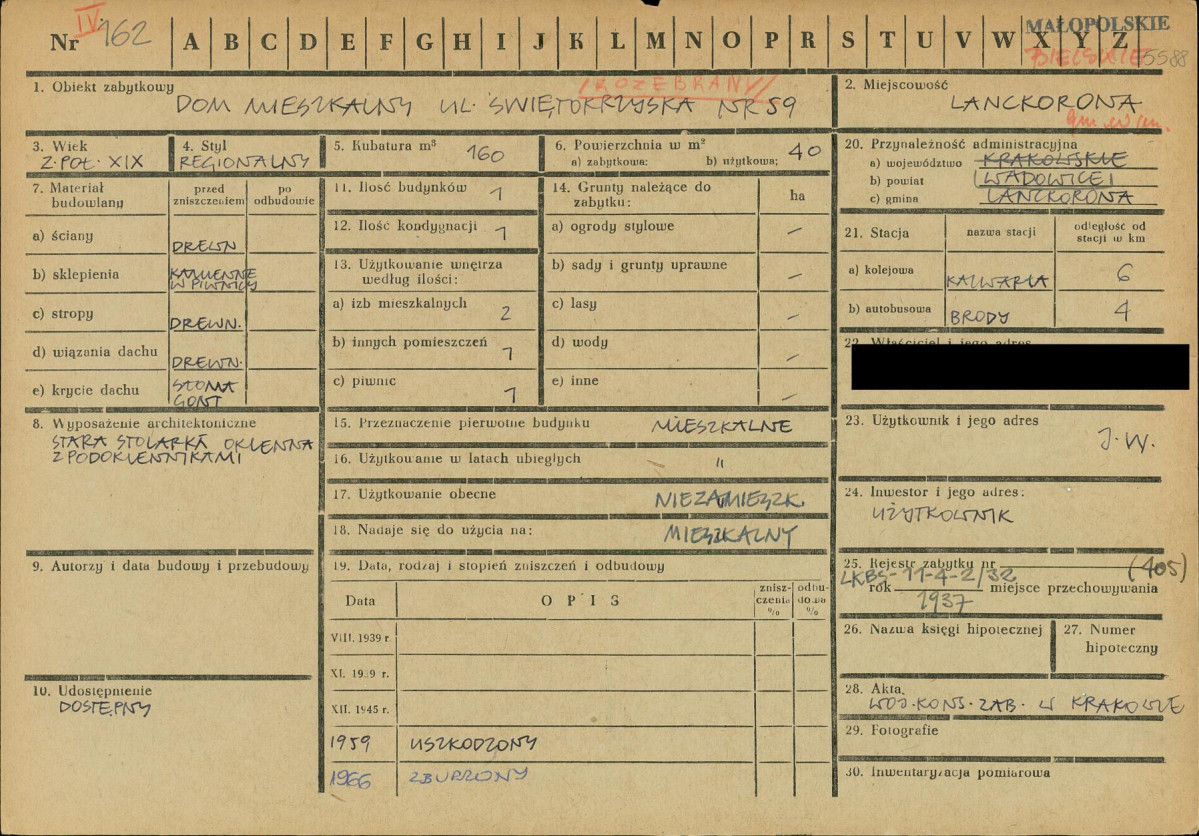 Nr IV 162 A B C D E F G H I J K L M N O P R S T U V W X Y Z
MAŁOPOLSKIE
BIELSKIE 5588
1. Obiekt zabytkowy
/ROZEBRANY/
DOM MIESZKALNY UL. ŚWIĘTOKRZYSKA NR 59
2. Miejscowość
LANCKORONA
3. Wiek
2. POŁ. XIX
4. Styl
REGIONALNY
5. Kubatura m³ 160
6. Powierzchnia w m²
a) zabytkowa: b) użytkowa; 40
7. Materiał budowlany
przed zniszczeniem
po odbudowie
a) ściany DREWN
b) sklepienia KAMIENNE W PIWNICY
c) stropy DREWN.
d) wiązania dachu DREWN.
e) krycie dachu SŁOMA GONT
8. Wyposażenie architektoniczne
STARA STOLARKA OKIENNA
Z PODOKIENNIKAMI
9. Autorzy i data budowy i przebudowy
10. Udostępnienie
DOSTĘPNY
11. Ilość budynków 1
12. Ilość kondygnacji 1
13. Użytkowanie wnętrza
według ilości:
a) izb mieszkalnych 2
b) innych pomieszczeń 1
c) piwnic 1
14. Grunty należące do
zabytku: ha
a) ogrody stylowe –
b) sady i grunty uprawne –
c) lasy –
d) wody –
e) inne –
15. Przeznaczenie pierwotne budynku MIESZKALNE
16. Użytkowanie w latach ubiegłych "
17. Użytkowanie obecne NIEZAMIESZK.
18. Nadaje się do użycia na: MIESZKALNY
19. Data, rodzaj i stopień zniszczeń i odbudowy
Data OPIS znisz-czenia % odbu-dowa %
VIII. 1939 r.
XI. 1939 r.
XII. 1945 r.
1959 USZKODZONY
1966 ZBURZONY
20. Przynależność administracyjna
a) województwo KRAKOWSKIE
b) powiat WADOWICE
c) gmina LANCKORONA
21. Stacja nazwa stacji odległość od stacji w km
a) kolejowa KALWARIA 6
b) autobusowa BRODY 4
22. Właściciel i jego adres
23. Użytkownik i jego adres
J. W.
24. Inwestor i jego adres:
UŻYTKOWNIK
25. Rejestr zabytku nr (405)
LKBS-11-4-2/32
rok 1937 miejsce przechowywania
26. Nazwa księgi hipotecznej
27. Numer hipoteczny
28. Akta.
WOJ. KONS. ZAB. W KRAKOWIE
29. Fotografie
30. Inwentaryzacja pomiarowa